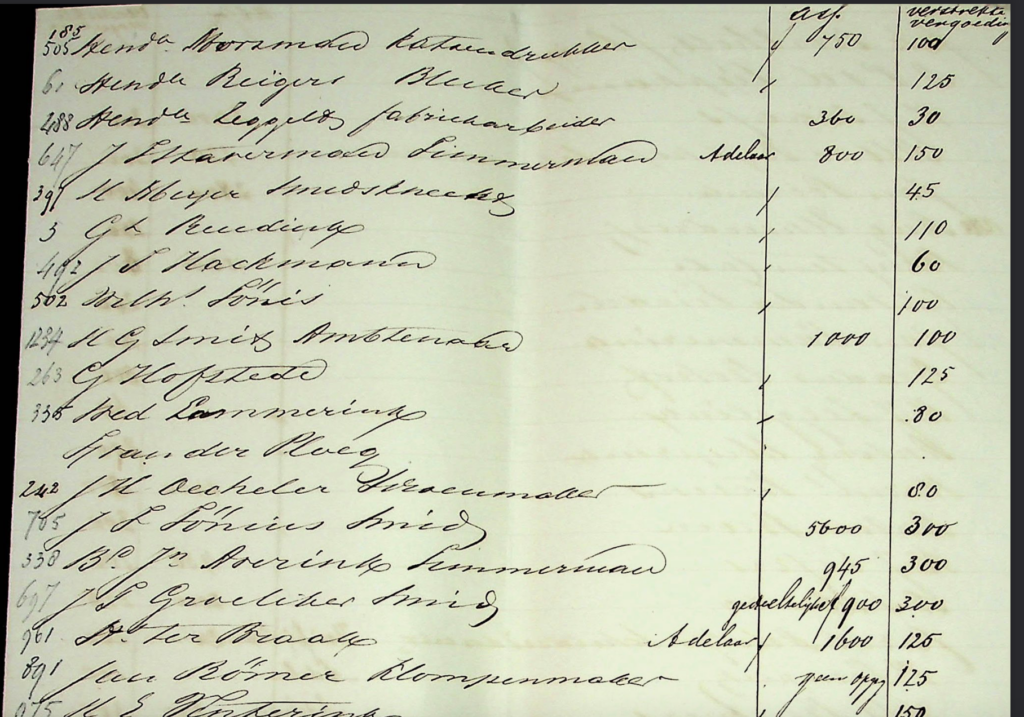 ass. verstrekte
vergoeding
185
505 Hendk Morsman Katoendrukker 750 100
Hendk Reijgers Bleeker 125
288 Hendk Leppelds fabriekarbeider 360 30
647 J Timmerman Adelaar 800 150
391 H Meyer Smidsknecht 45
3 Gt 110
492 J T Hackmann 60
502 Wilhl Tönis 100
1234 H G Smits Ambtenaar 1000 100
263 G Hofstede 125
335 Wed Lammerink 80
van der Ploeg
242 J H Oecheler Schoenmaker 80
705 J L Tönius Smid 5600 300
338 Bd Jn Averink Timmerman 945 300
697 J T Smid gedeeltelijk f 900 300
961 H. ter Braak Adelaar 1600 125
891 Jan Römer Klompenmaker geen 125
H E 150